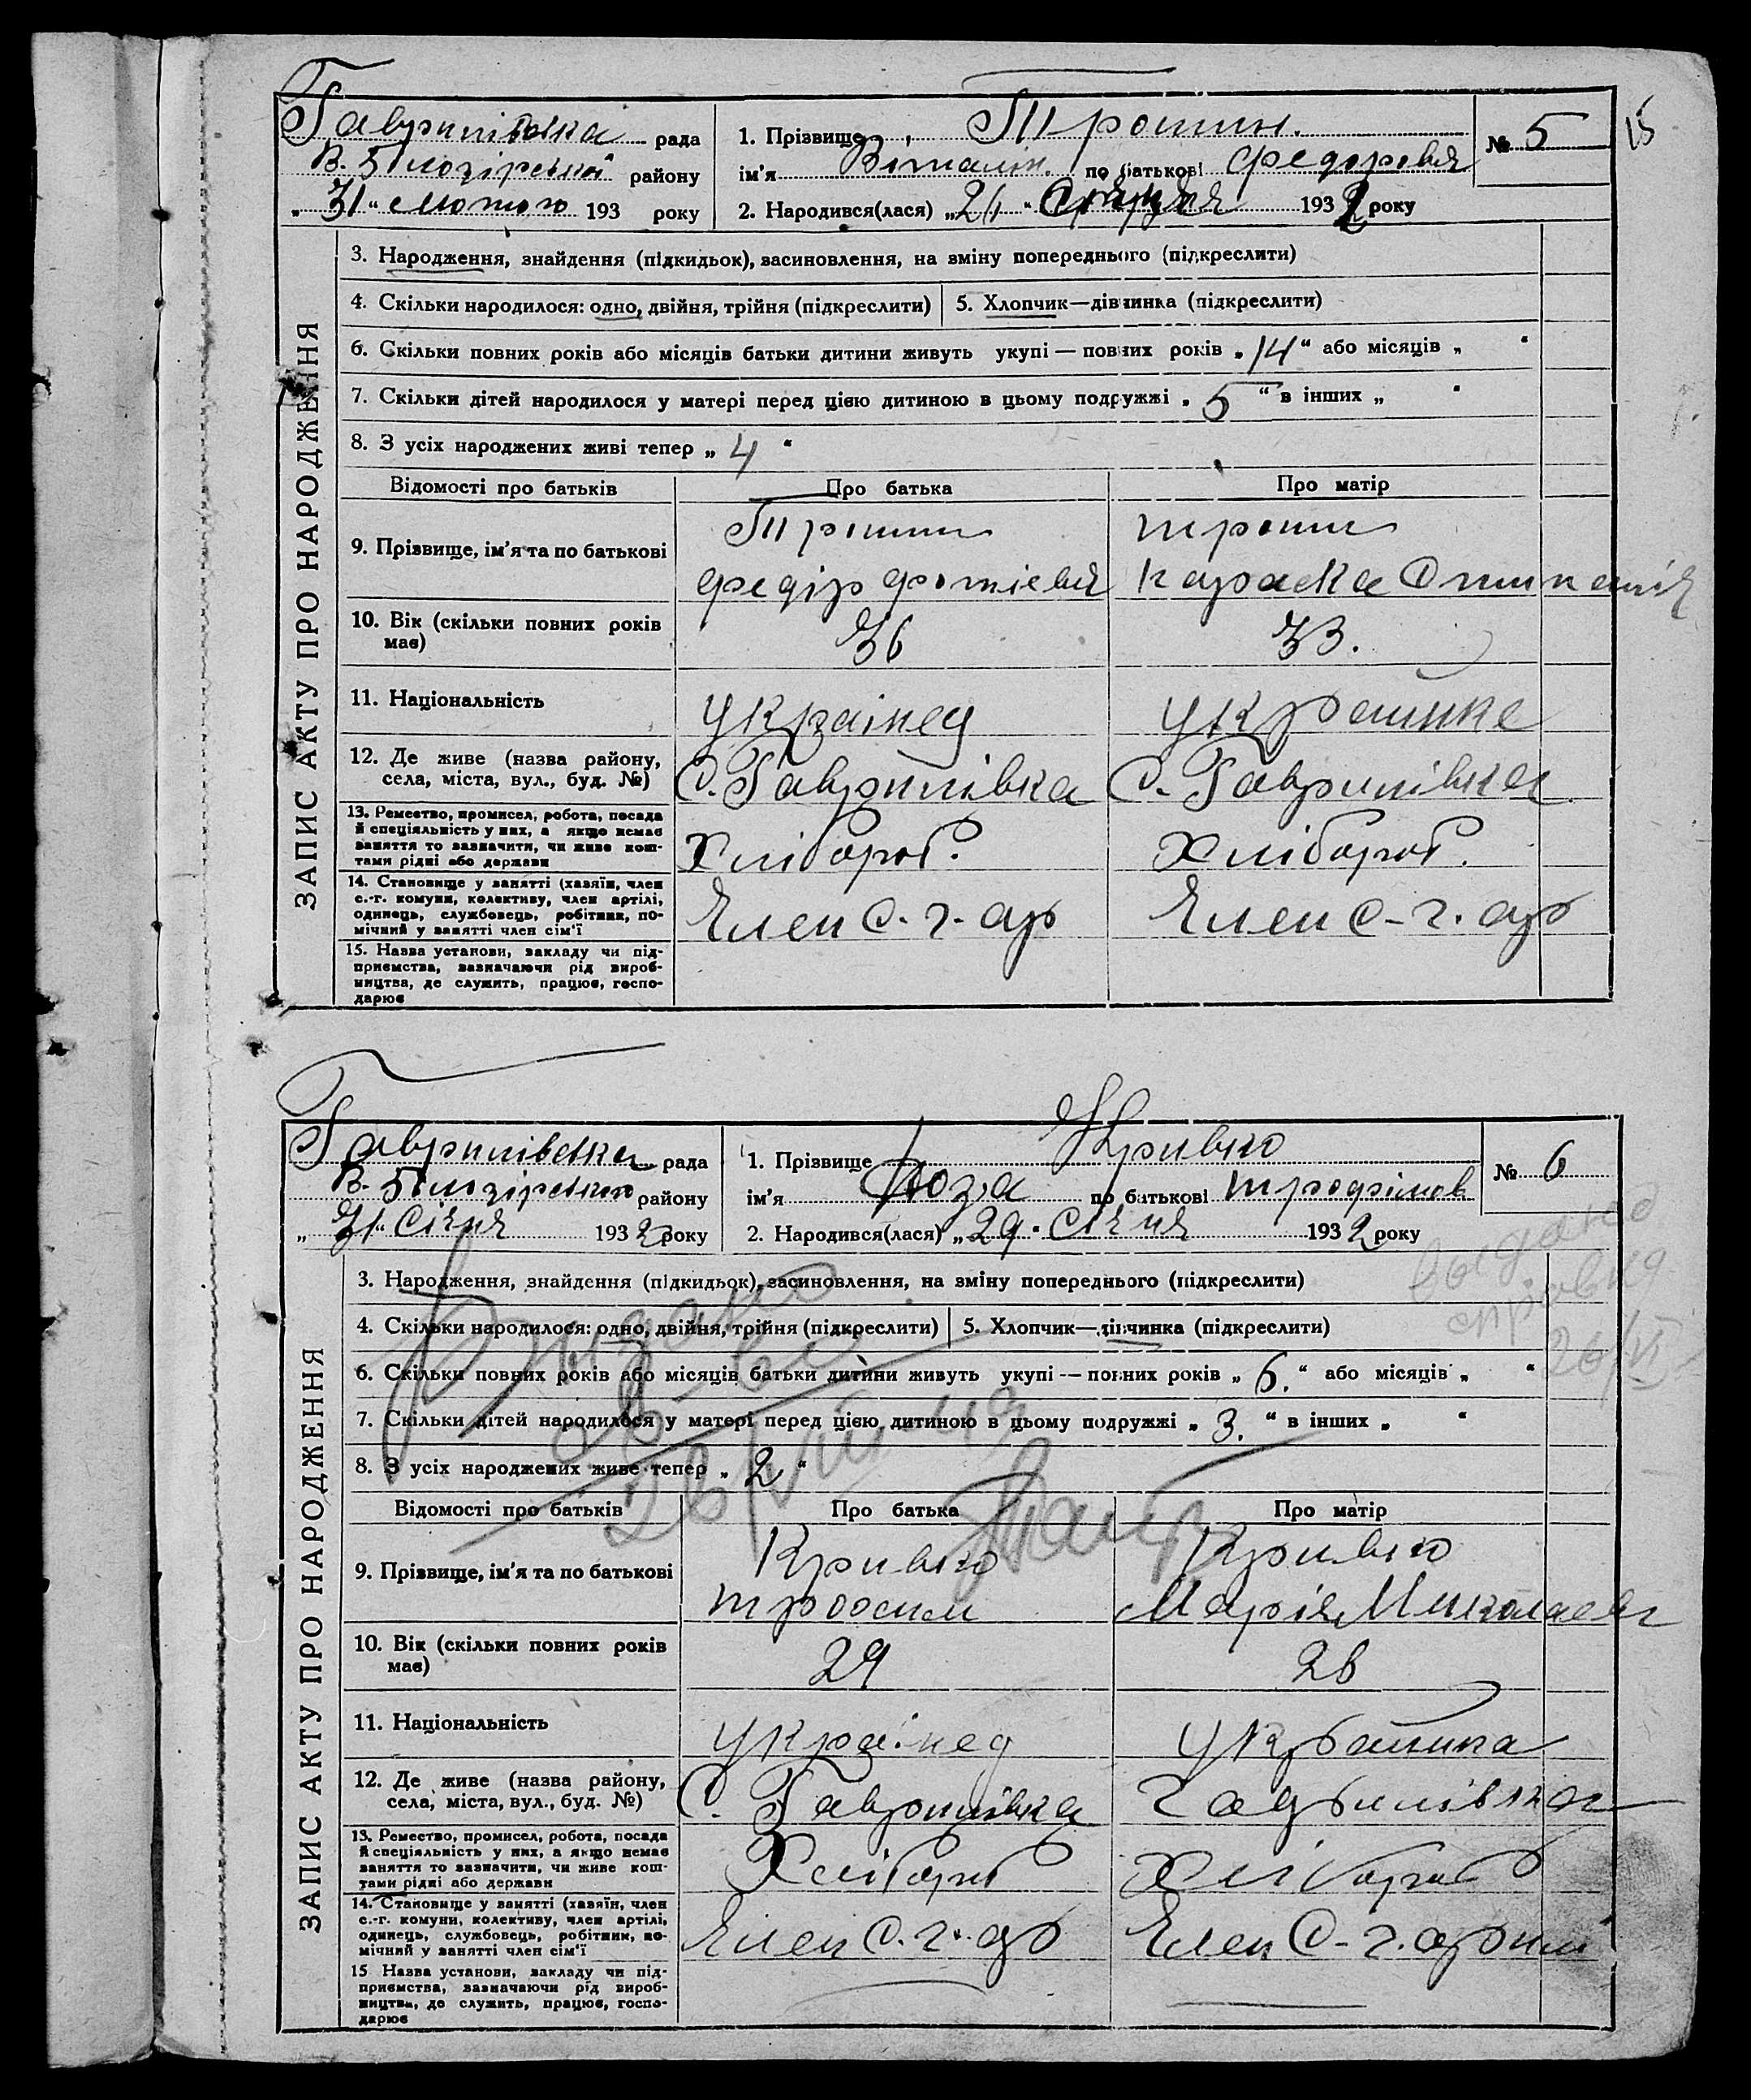 15
Гаврилівська рада
В. Білозірської району
„31“ лютого 193 року
1. Прізвище Трошин.
ім'я Віталій. по батькові Федоровия
2. Народився(лася) „21“ Січня 1932 року
№ 5
ЗАПИС АКТУ ПРО НАРОДЖЕННЯ
3. Народження, знайдення (підкидьок), засиновлення, на зміну попереднього (підкреслити)
4. Скільки народилося: одно, двійня, трійня (підкреслити)
5. Хлопчик—дівчинка (підкреслити)
6. Скільки повних років або місяців батьки дитини живуть укупі — повних років „14“ або місяців „ “
7. Скільки дітей народилося у матері перед цією дитиною в цьому подружжі „5“ в інших „ “
8. З усіх народжених живі тепер „4“
Відомості про батьків Про батька Про матір
9. Прізвище, ім'я та по батькові
Трошин
Федір Фотіевия
трошин
Параска
10. Вік (скільки повних років має)
36 33.
11. Національність
українец українка
12. Де живе (назва району, села, міста, вул., буд. №)
С. Гаврилівка С. Гаврилівка
13. Ремество, промисел, робота, посада
й спеціяльність у них, а якщо немає
заняття то зазначити, чи живе кош-
тами рідні або держави
Хлібороб. Хлібороб.
14. Становище у занятті (хазяїн, член
с.-г. комуни, колективу, член артілі,
одинець, службовець, робітник, по-
мічний у занятті член сім'ї
Член С.-г. ар Член С-г. ар
15. Назва установи, закладу чи під-
приємства, зазначаючи рід вироб-
ництва, де служить, працює, госпо-
дарює
Гаврилівська рада
В. Білозірського району
„31“ Січня 1932 року
1. Прізвище Кривко
ім'я Роза по батькові трофімов
2. Народився(лася) „29“ Січня 1932 року
№ 6
ЗАПИС АКТУ ПРО НАРОДЖЕННЯ
3. Народження, знайдення (підкидьок), засиновлення, на зміну попереднього (підкреслити)
4. Скільки народилося: одно, двійня, трійня (підкреслити)
5. Хлопчик—дівчинка (підкреслити)
выдано
справка
26/VI
6. Скільки повних років або місяців батьки дитини живуть укупі — повних років „6.“ або місяців „ “
7. Скільки дітей народилося у матері перед цією дитиною в цьому подружжі „3.“ в інших „ “
8. З усіх народжених живе тепер „2“
Видано
Відомості про батьків Про батька Про матір
9. Прізвище, ім'я та по батькові
Кривко
трофим
Кривко
Марія Миколаевн
10. Вік (скільки повних років має)
29 28
11. Національність
українец українка
12. Де живе (назва району, села, міста, вул., буд. №)
С. Гаврилівка Гаврилівка
13. Ремество, промисел, робота, посада
й спеціяльність у них, а якщо немає
заняття то зазначити, чи живе кош-
тами рідні або держави
Хлібороб Хлібороб
14. Становище у занятті (хазяїн, член
с.-г. комуни, колективу, член артілі,
одинець, службовець, робітник, по-
мічний у занятті член сім'ї
Член С.-г. ар Член С-г. артил
15 Назва установи, закладу чи під-
приємства, зазначаючи рід вироб-
ництва, де служить, працює, госпо-
дарює